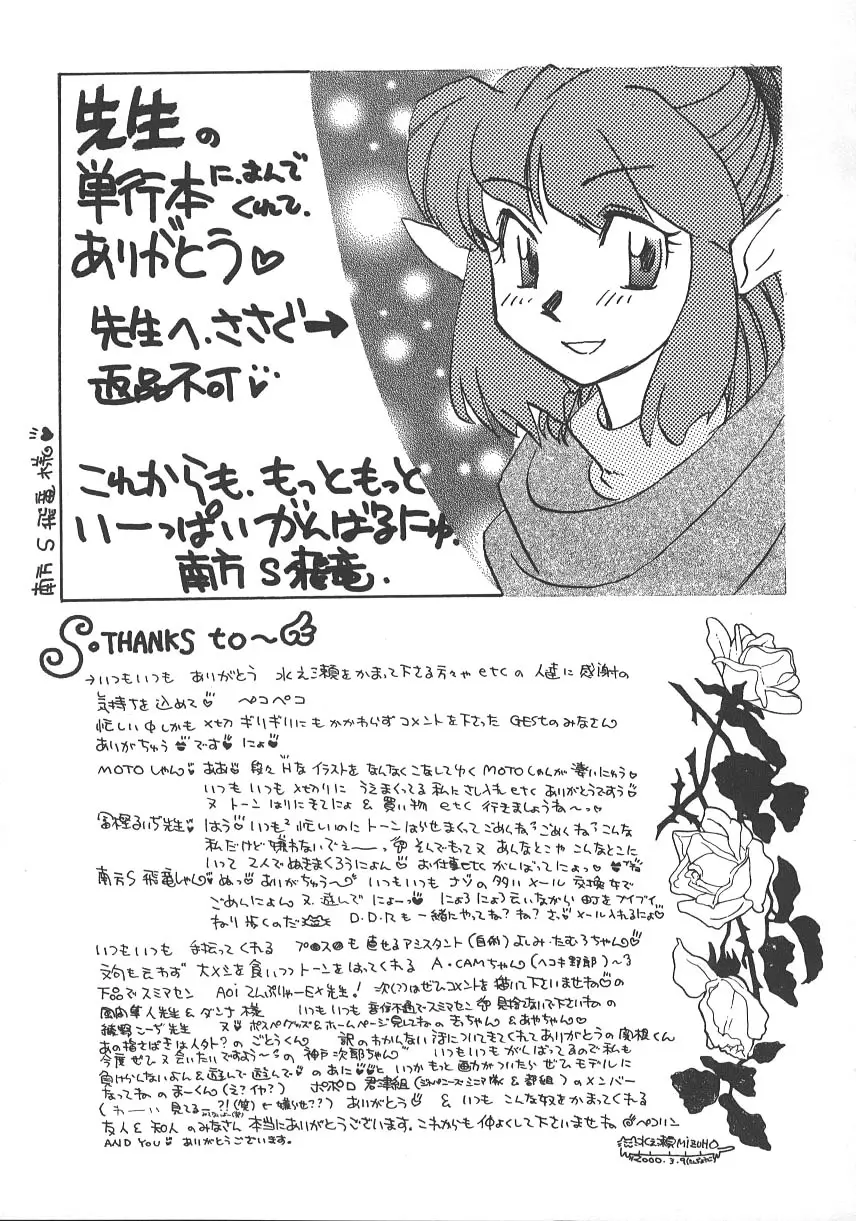 先生の
単行本に、まんで
くれて、
ありがとう♡
先生へ、ささぐ→
返品不可♡
これからも、もっともっと
いーっぱいがんばるにゅ。
南方S飛竜.
南方S飛竜様♥
S・THANKS to～
→いつもいつも ありがとう 水之瀬をかまって下さる方々や etcの 人達に 感謝の
気持ちを込めて♥ ペコペコ
忙しい中しかも 〆切 ギリギリにも かかわらず コメントを下さった GESTのみなさん
ありがちゅう♥です♥ にょ♥
MOTOしゃん♥ ああ♥ 段々 Hな イラストを なんなくこなしてゆく MOTOしゃんが 凄いにゃう♥
いつも いつも 〆切りに うえまくってる 私に さし入れ etc ありがとうですう♥
又 トーン はりにきてにょ & 買い物 etc 行きましょうね～っ
富樫るいぢ先生♥ はう♥ いつも² 忙しいのに トーン はらせまくて ごめくね? ごめくね? こんな
私だけど 嫌わないでぇーっ そんでもって又 あんなとこや こんなとこに
いって 2人で ぬきまくろうにょん♥ お仕事etc がんばってにょっ♥
南方S 飛竜しゃん♥ ぬっ♥ ありがちゅう～ いつもいつも ナゾの 多い メール 交換 女で
ごめんにょん 又 遊んで にょーっ♥ にょろにょろ 云いながら 町を ブイブイ
ねり歩くのだ D.D.Rも 一緒に やってね? ね? さっ♥ メール入れるにょ♥
いつもいつも 手伝ってくれる プ●ス●も 直せるアシスタント(自称) よしみ・たむろちゃん♥
文句も云わず 大メシを食いつつ トーンをはってくれる A・CAMちゃん(ヘコキ野郎)～3
下品で スミマセン Aoi てんぷりゃーEX先生! 次(?)はぜひコメントを描いて下さいませねの
隼人先生 & ダンナ 様 いつもいつも 音信不通で スミマセン 見捨てないで下さいねの
綾野こーぢ先生 又 ポスペグッズ & ホームページ 見してねの もっちゃん & あやちゃん♡
あの指さばきは人外? の ごとうくん 訳のわかんない 話についてきてくれて ありがとうの 関根くん
今度ぜひ又 会いたいですよう～の 神戸次郎ちゃん いつもいつも がんばってるので 私も
負けらんないよん & 遊んで 遊んで♥の あに♥♥と いつか もっと 画力がついたら ぜひ モデルに
なってねの まーくん(え?イヤ?) ポポロ 君津組(ジャパニーズ・ミニマ隊 & 都組)のメンバー
(わーい 見てる ?!(笑) ←嫌がらせ??) ありがとう♡ & いつも こんな奴を かまってくれる
友人 & 知人のみなさん 本当にありがとうございます。これからも 仲よくして下さいませね ペコリン
AND YOU♥ ありがとうございます.
水之瀬MIZUHO
2000.3.9